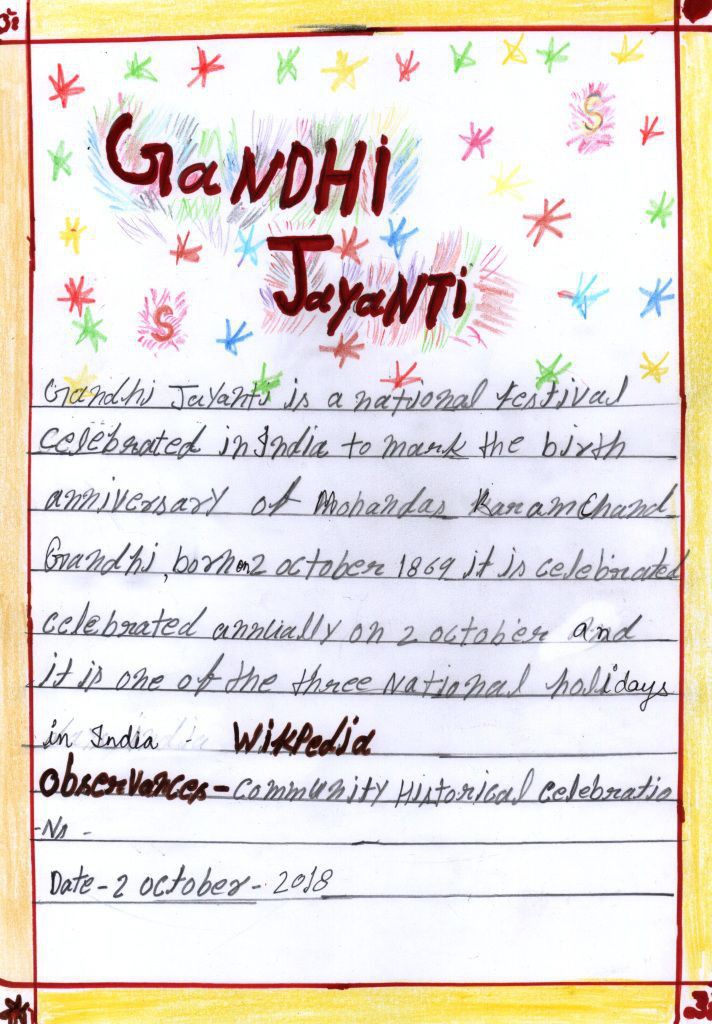 ॐ
S
GaNDHi
JayaNTi
S
Gandhi Jayanti is a national festival
celebrated in India to mark the birth
anniversary of Mohandas Karam Chand
Gandhi, born on 2 october 1869 it is celebrated
celebrated annually on 2 october and
it is one of the three National holidays
in India - WikPedia
Observances - Community Historical Celebratio
-Ns -
Date - 2 october - 2018